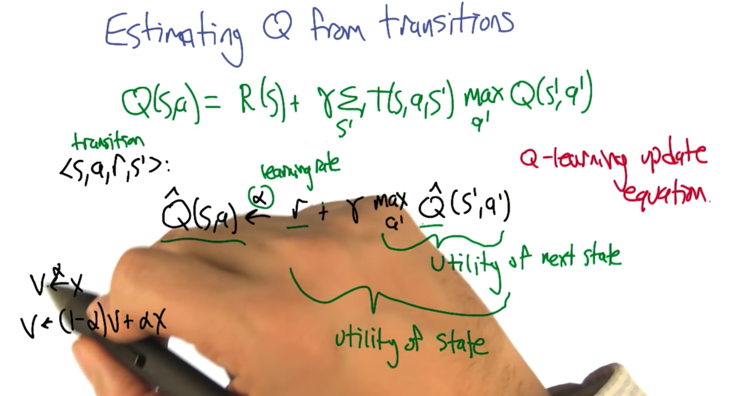 Estimating Q from transitions
Q(s,a) = R(s) + γ Σ T(s,a,s') max Q(s',a')
s' a'
transition
<s,a,r,s'>:
learning rate
Q̂(s,a) ←α r + γ max Q̂(s',a')
a'
Q-learning update
equation.
utility of next state
utility of state
V ←α X
V ← (1-α)V + αX